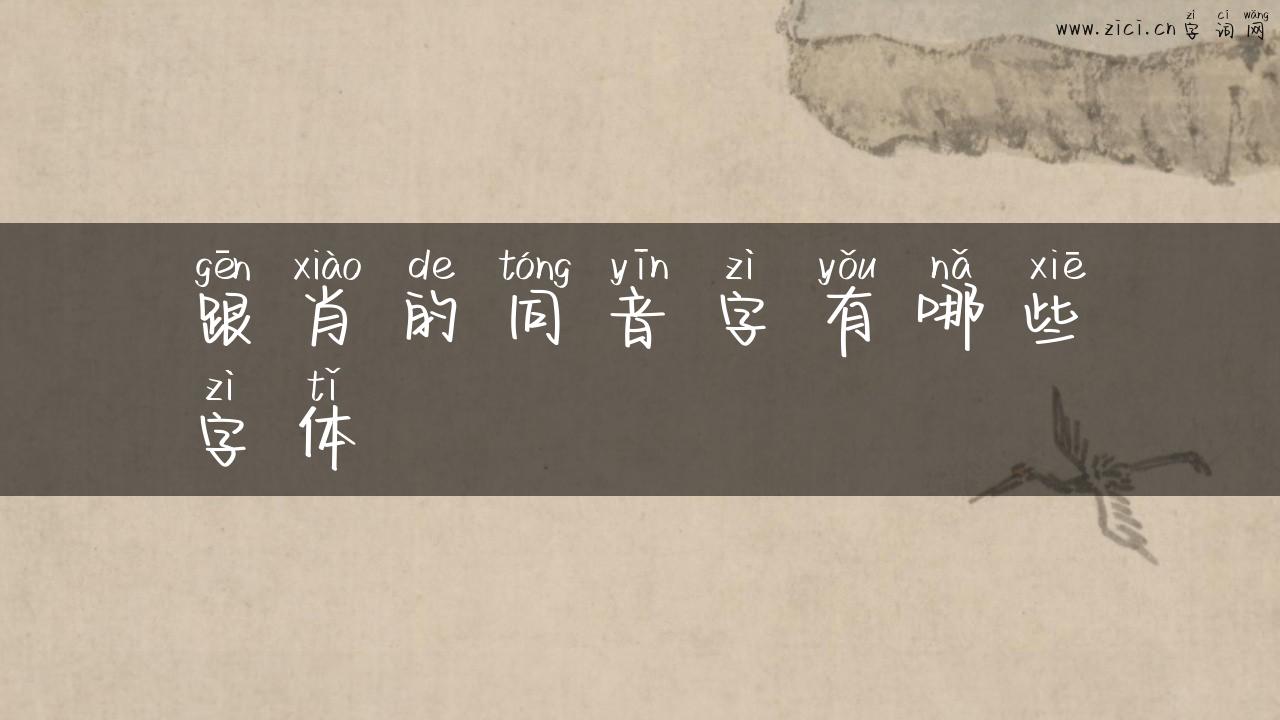 zì cí wǎng
www.zici.cn 字 词 网
gēn xiào de tóng yīn zì yǒu nǎ xiē
跟 肖 的 同 音 字 有 哪 些
zì tǐ
字 体